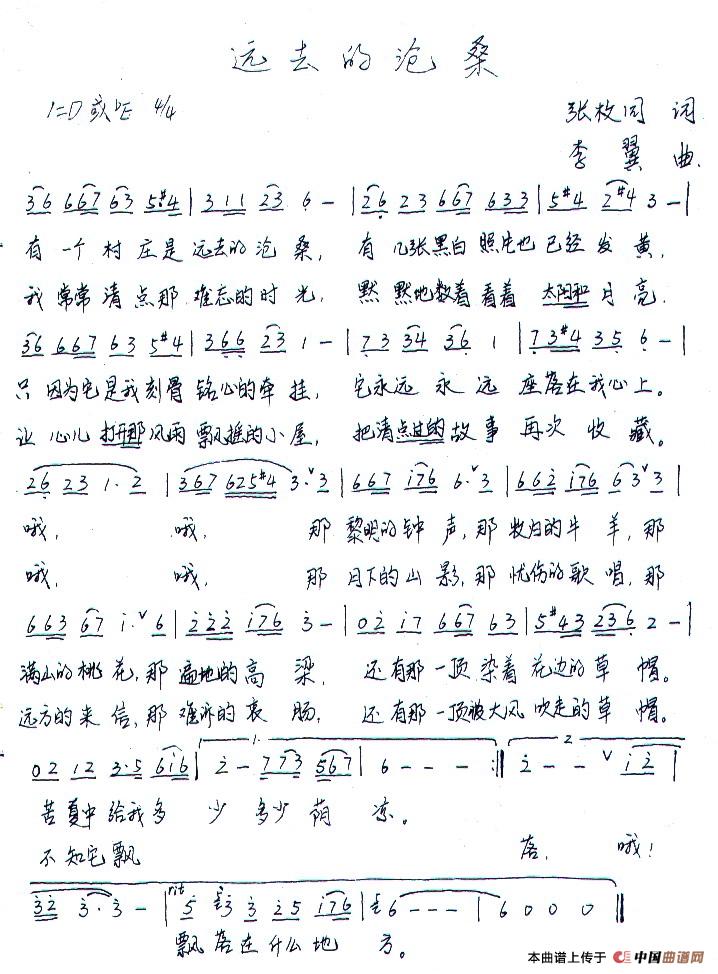 远去的沧桑
1=D或♭E 4/4
张枚同 词
李翼 曲
36 667 63 5#4 | 311 23 6 - | 26 23 667 633 | 5#4 2#4 3 - |
有一个村庄是远去的沧桑，有几张黑白照片也已经发黄，
我常常清点那难忘的时光，默默地数着看着太阳和月亮。
36 667 63 5#4 | 366 23 1 - | 73 34 36 1 | 73#4 35 6 - |
只因为它是我刻骨铭心的牵挂，它永远永远座落在我心上。
让心儿打开那风雨飘摇的小屋，把清点过的故事再次收藏。
26 23 1·2 | 367 625#4 3·∨3 | 667 i76 6·∨3 | 662 i76 63∨3 |
哦，哦，那黎明的钟声，那牧归的牛羊，那
哦，哦，那月下的山影，那忧伤的歌唱，那
663 67 i·∨6 | 222 i76 3 - | 02 i7 667 63 | 5#43 236 2 - |
满山的桃花，那遍地的高粱，还有那一顶染着花边的草帽。
远方的来信，那难诉的衷肠，还有那一顶被大风吹走的草帽。
02 12 3·5 6i6 | 1. 2 - 773 567 | 6 - - - :|| 2. 2 - - ∨ i2 |
苦夏中给我多少多少荫凉。
不知它飘落，哦！
32 3·3 - | rit 5 3 3 25 i76 | 6 - - - | 6 0 0 0 ||
飘落在什么地方。
本曲谱上传于 中国曲谱网